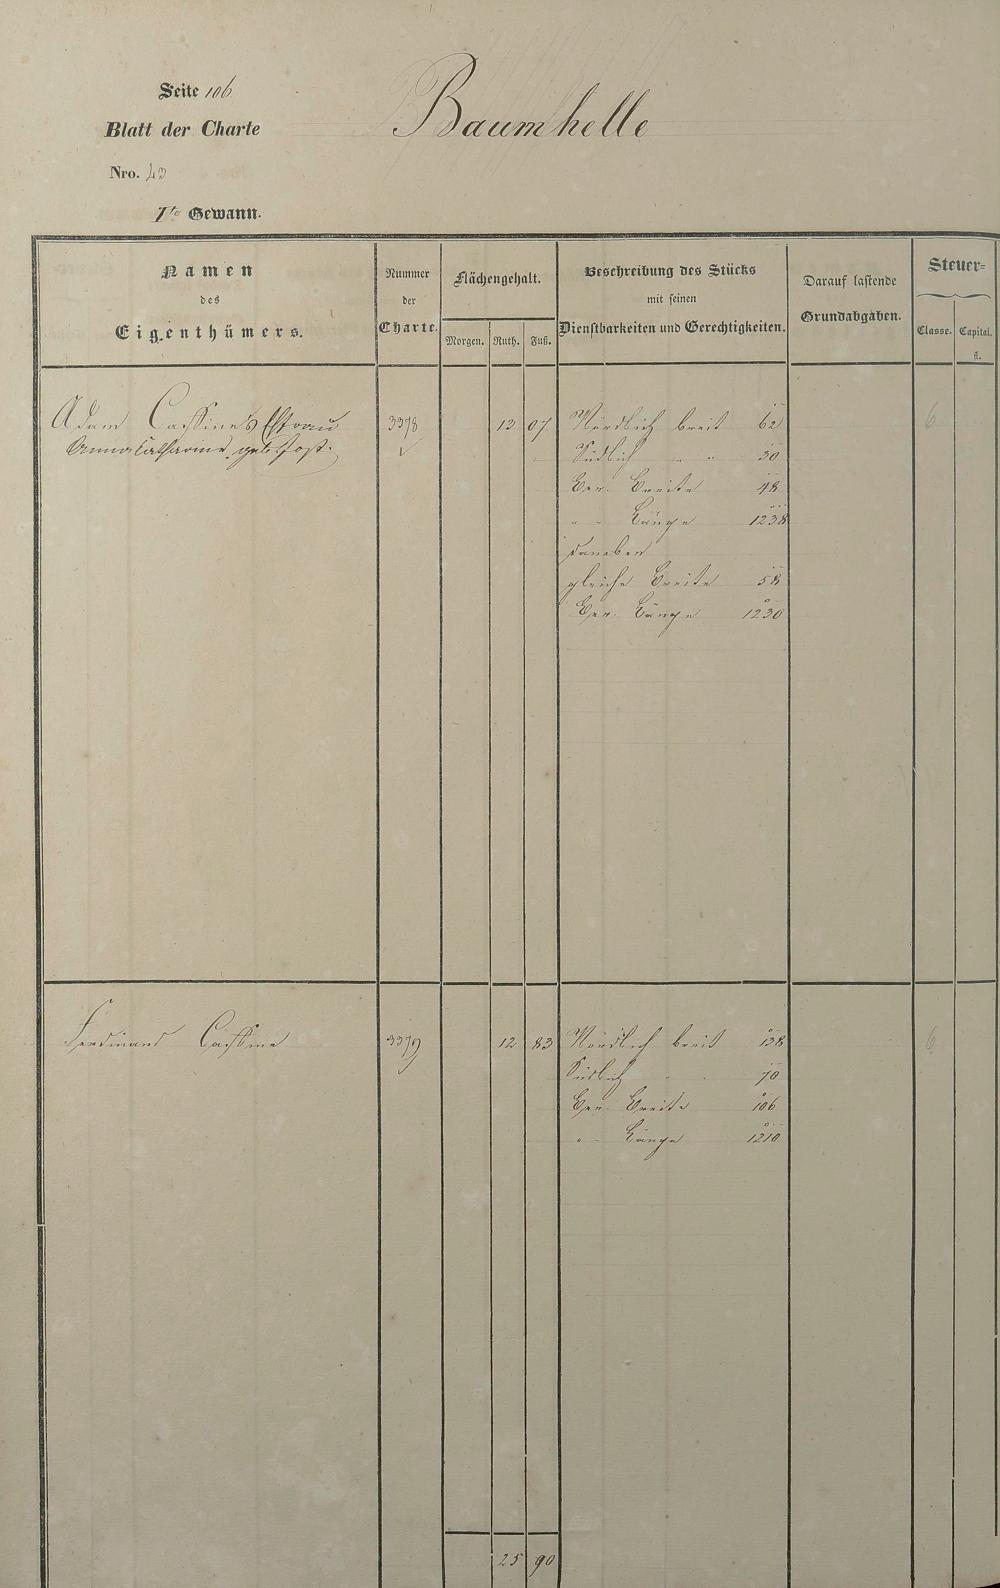 Seite 106
Baumhelle
Blatt der Charte
Nro. 43
7te Gewann.
Namen des Eigenthümers.
Nummer der Charte.
Flächengehalt.
Morgen. Ruth. Fuß.
Beschreibung des Stücks mit seinen Dienstbarkeiten und Gerechtigkeiten.
Darauf lastende Grundabgaben.
Steuer=
Classe. Capital. fl.
Adam Cassines Ehfrau 3378 13 07 Nördlich breit 62 6
Anna Catharine, geb. Jost. Südlich " " 30
Ber. Breite 48
" " Länge 1238
daneben
gleiche Breite 58
Ber. Länge 1230
Ferdinand Cassine 3379 12 83 Nördlich breit 138 6
Südlich " " 70
Ber. Breite 106
" " Länge 1210
25 90